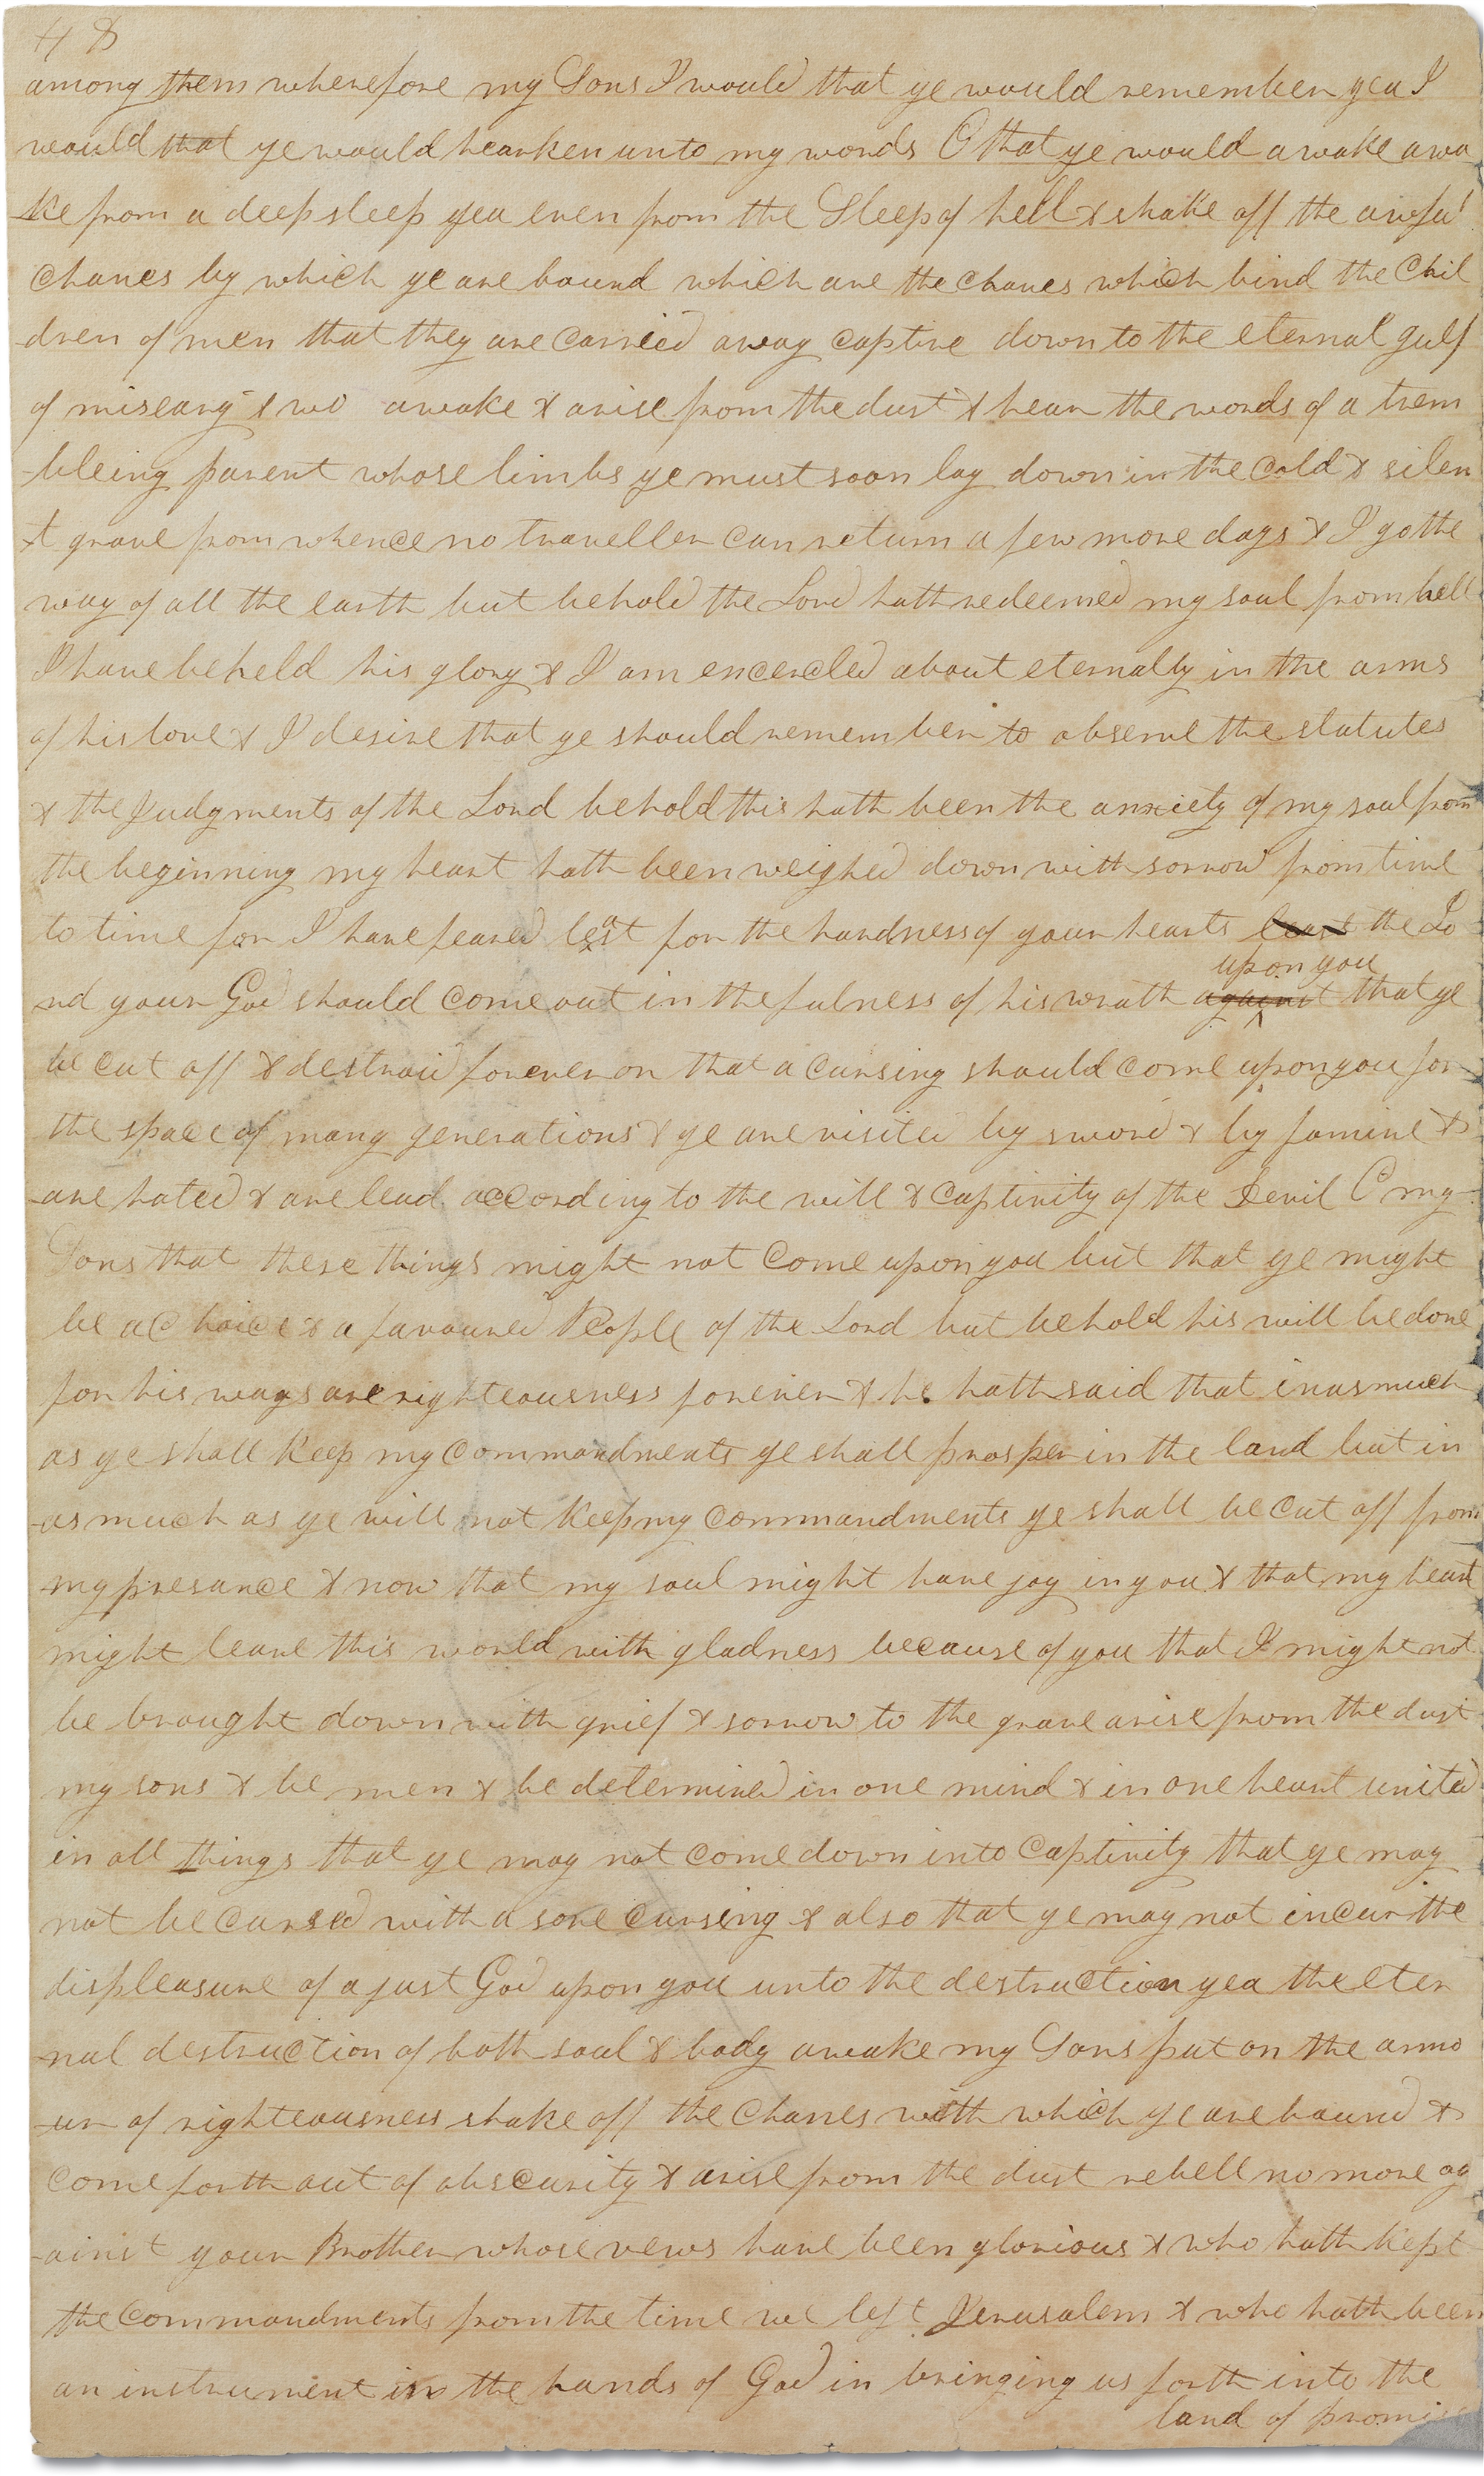 48
among them wherefore my Sons I would that ye would remember yea I
would that ye would hearken unto my words O that ye would awake awa
-ke from a deep sleep yea even from the Sleep of hell & shake off the awful
chanes by which ye are bound which are the chanes which bind the Chil
-dren of men that they are carried away captive down to the eternal gulf
of misearg & wo awake & arise from the dust & hear the words of a trem
-bleing parent whose limbs ye must soon lay down in the cold & silen
-t grave from whence no traveller can return a few more days & I go the
way of all the earth but behold the Lord hath redeemed my soul from hell
I have beheld his glory & I am encercled about eternally in the arms
of his love & I desire that ye should remember to observe the statutes
& the Judgments of the Lord behold this hath been the anxiety of my soul from
the beginning my heart hath been weighed down with sorrow from time
to time for I have feared least for the hardness of your hearts least the Lo
upon you
rd your God should come out in the fulness of his wrath against that ye
be cut off & destroid forever or that a cursing should come upon you for
the space of many generations & ye are visited by sword & by famine &
-are hated & are lead according to the will & captivity of the Devil O my
Sons that these things might not come upon you but that ye might
be a choice & a favoured People of the Lord but behold his will be done
for his ways are righteousness forever & he hath said that inasmuch
as ye shall keep my commandments ye shall prosper in the land but in
-asmuch as ye will not keep my commandments ye shall be cut off from
my presance & now that my soul might have joy in you & that my heart
might leave this world with gladness because of you that I might not
be brought down with grief & sorrow to the grave arise from the dust
my sons & be men & be determined in one mind & in one heart united
in all things that ye may not come down into captivity that ye may
not be cursed with a sore cursing & also that ye may not incur the
displeasure of a just God upon you unto the destruction yea the eter
-nal destruction of both soul & body awake my Sons put on the armo
-ur of righteousness shake off the chanes with which ye are bound &
come forth out of obscurity & arise from the dust rebell no more ag
-ainst your Brother whose vews have been glorious & who hath kept
the commandments from the time we left Jerusalem & who hath been
an instrument in the hands of God in bringing us forth into the
land of promise